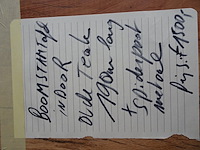 BOOMSTAMTAfel
inDOOR
Oude Teak
190cm lang
+
Spiderpoot
metaal
prijs: € 1500,-